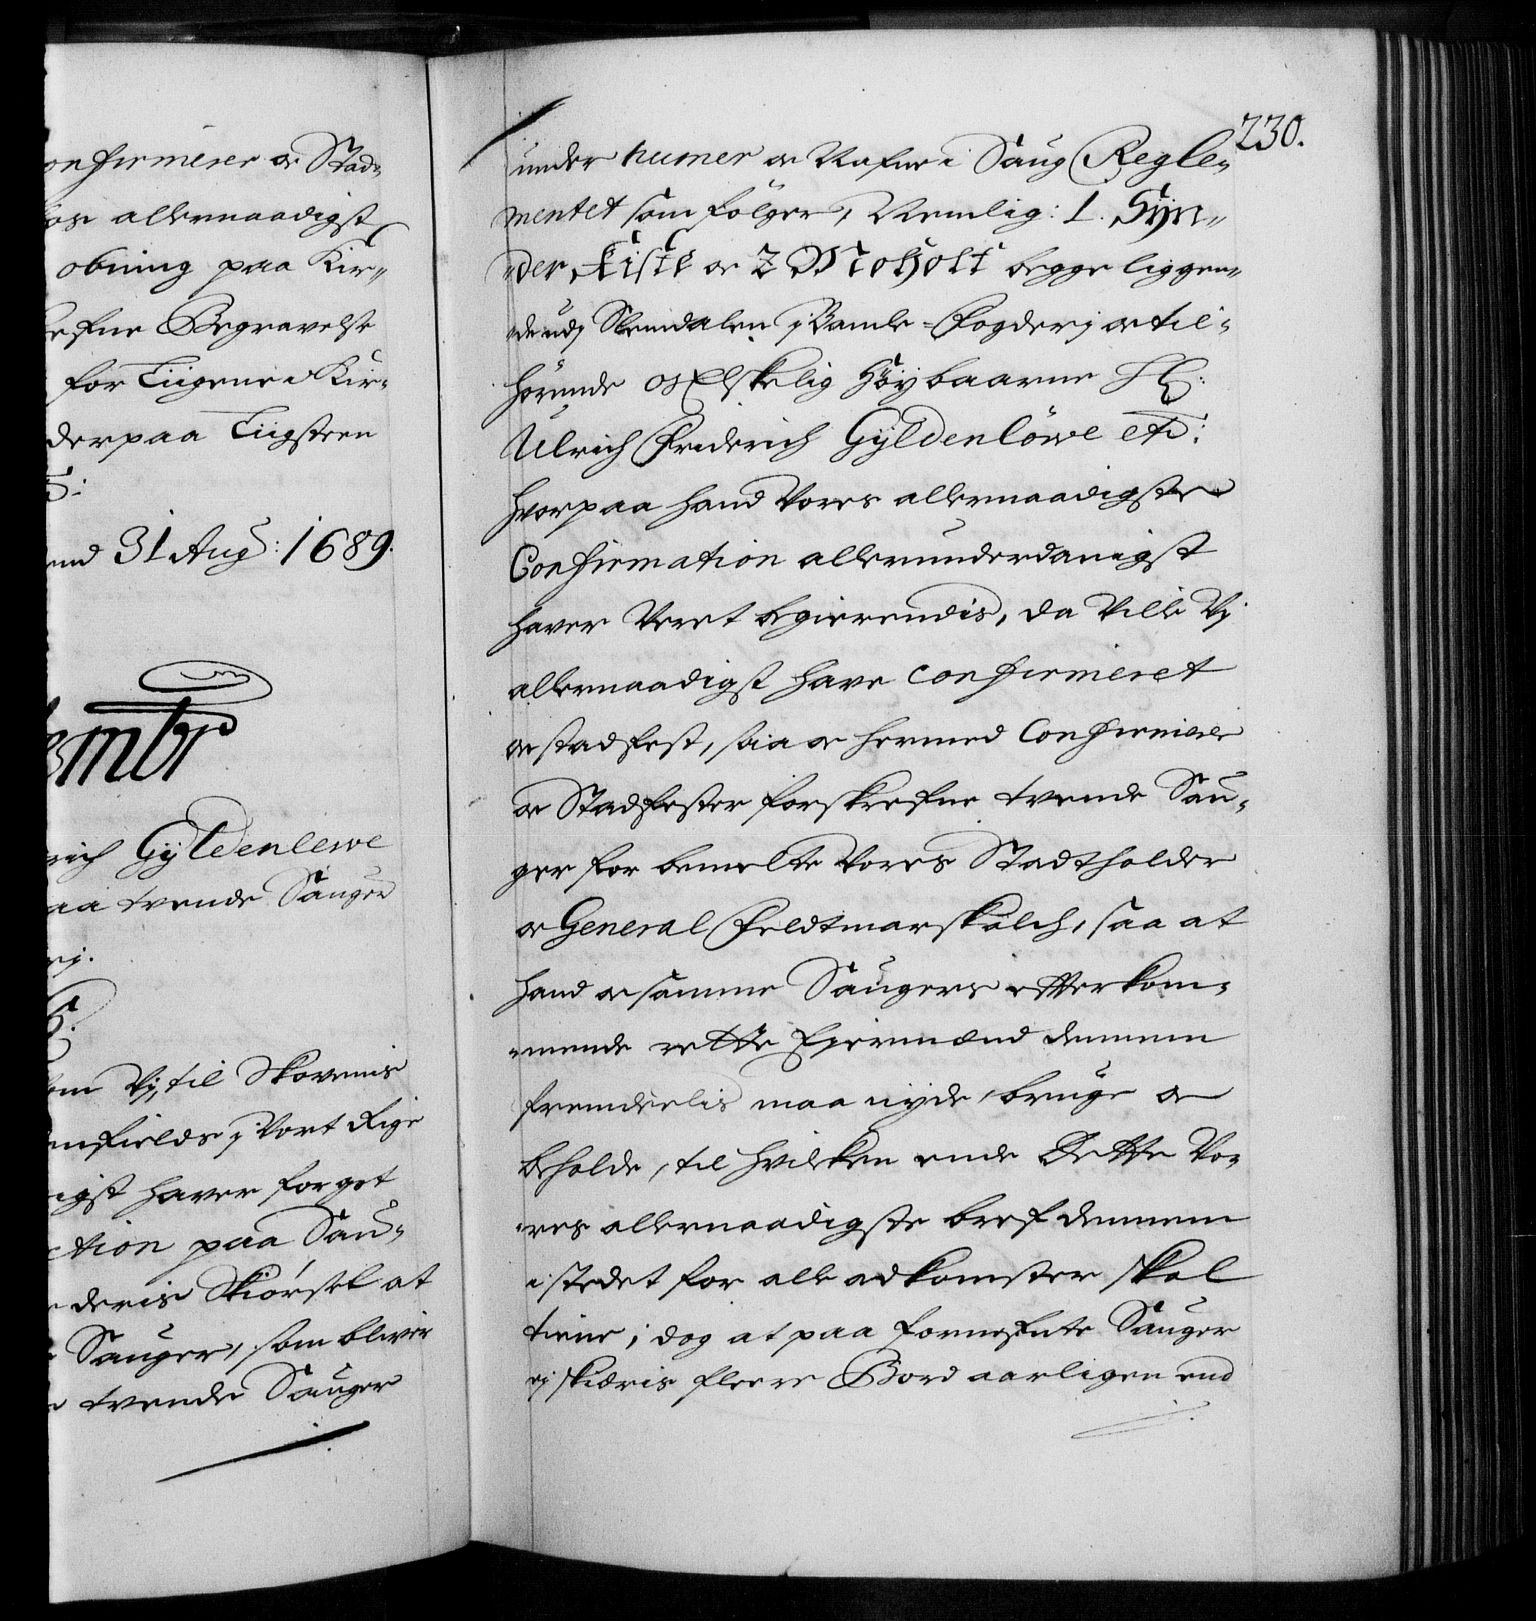 onfirmerer oc Stad-
os allernaadigst
obning paa Kir-
efne Begravelse
for Tiigene i Kir-
derpaa Tiigsteen
5:
end 31 Aug: 1689.
embr
rich Gyldenlewe
aa tvende Sauger
rj.
5.
om Vj til Skovenis
nfields i Vort Rige
igst haver forgot
ction paa Sau-
deris Skiörsel at
Sauger, som bliver
tvende Sauger
230.
under numer oc Nafne i Saug Regle-
mentet som fölger, Nemlig: 1. Syn-
der Kiste oc 2 Moholt begge liggen-
de udj Slemdalen j Bamle-Fogderj oc til-
hörende os Elskelig Höybaarne H:
Ulrich Friderich Gyldenlöwe etc:
hvorpaa hand Vores allernaadigste
Confirmation allerunderdanigst
haver Veret begierendis, da Ville Vj
allernaadigst have confirmeret
oc stadfest, saa oc hermed Confirmerer
oc Stadfester forskrefne tvende Sau-
ger for bemelte Vores Stadtholder
oc General Feldtmarskalch, saa at
hand oc samme Saugers efterkom-
mende rette Ejermænd dennem
fremdeelis maa nyde, bruge oc
beholde, til hvilken ende Dette Vo-
res allernaadigste bref dennem
i stedet for alle adkomster skal
tiene; dog at paa fornefnte Sauger
ej skiæris fleere Bord aarligen end